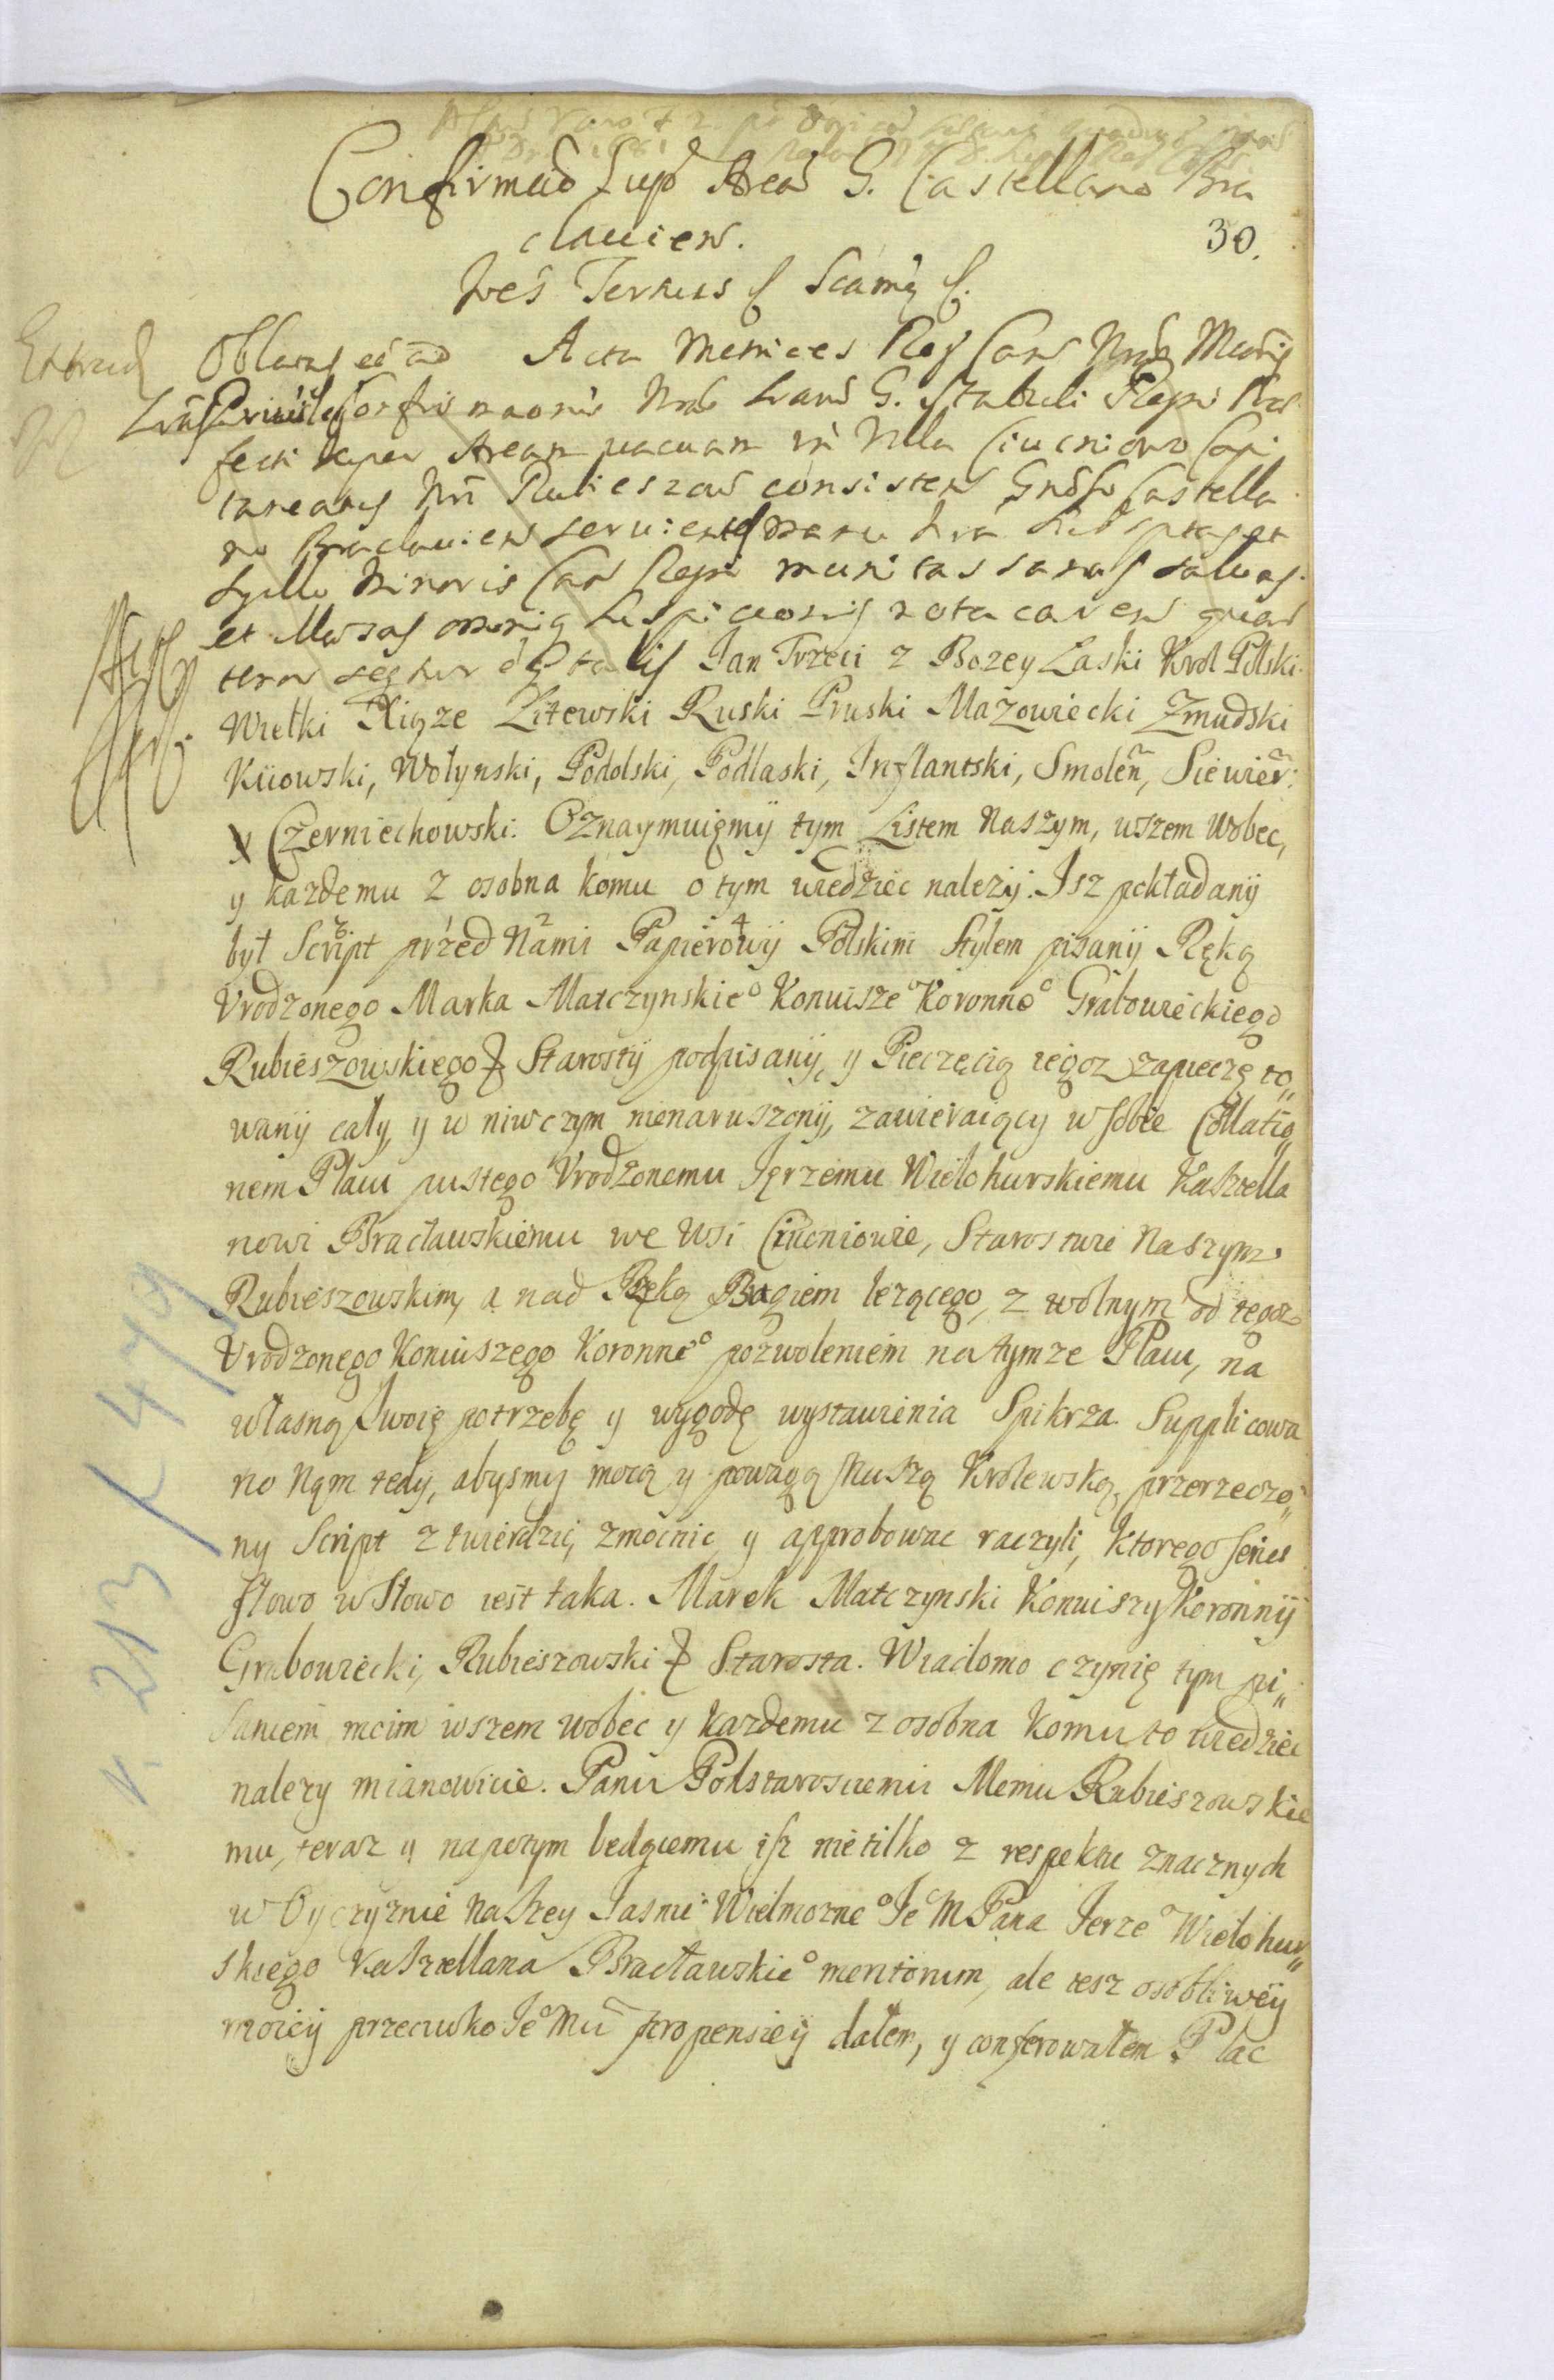 Confirmaõ Sup Area G. Castellano Bra
clavien.
30.
Oblatus ad Acta Metrices
super Aream vacuam in Villa Ciucniowo Capi
taneatus Rubieszow consisten Castella
no Braclavien servien
Sigillo Minoris Can Regni munitas sanas salvas
et illaesas omniq suspicionis nota caren quar
tenor seqtur talis Jan Trzeci z Bozey Łaski Krol Polski
Wielki Xiąze Litewski Ruski Pruski Mazowiecki Zmudski
Kiiowski, Wołynski, Podolski, Podlaski, Inflantski, Smoleñ, Siewier:
y Czerniechowski. Oznaymuięmÿ tym Listem Naszym, wszem wobec,
y kazdemu z osobna komu o tym wiedziec nalezÿ. Isz pokładanÿ
był Script przed Nami Papierowÿ Polskim Stylem pisanÿ Ręką
Vrodzonego Marka Matczynskie° Koniusze° Koronne° Grabowieckiego
Rubieszowskiego & Starostÿ podpisanÿ, y Pieczęcią iegoz zapieczęto„
wanÿ cały, y w niwczym nienaruszonÿ, zawieraiący w sobie Collatio„
nem Placu pustego Vrodzonemu Jerzemu Wielohurskiemu Kasztella
nowi Bracławskiemu we Wsi Ciucniowie, Starostwie Naszym
Rubieszowskim, a nad Rzeką Bugiem lezącego, z wolnym od tegoz
Vrodzonego Koniuszego Koronne° pozwoleniem na tymze Placu, na
własną Swoię potrzebę y wygodę wystawienia Spikrza. Supplicowa
no Nąm tedy, abysmy mocą y powagą Naszą Krolewską, przerzeczo„
ny Script ztwierdzic, zmocnic y approbowac raczyli, ktorego Series
słowo w słowo iest taka. Marek Matczynski Koniuszy Koronnÿ
Grabowiecki, Rubieszowski & Starosta. Wiadomo czynię tym pi„
saniem moim wszem wobec y kazdemu z osobna komu to wiedziec
nalezy mianowicie. Panu Podstarosciemu Memu Rubieszowskie
mu, teraz y napotym bedącemu isz nietilko z respektu znacznych
w Oyczyznie Naszey Jasnie Wielmozne° Je° M Pana Jerze° Wielohur„
skiego Kasztellana Bracławskie° meritorum, ale tesz osobliwëy
moiëy przeciwko Je°Mci propensiëy dałem, y conferowałem Plac
V. 213 K 479